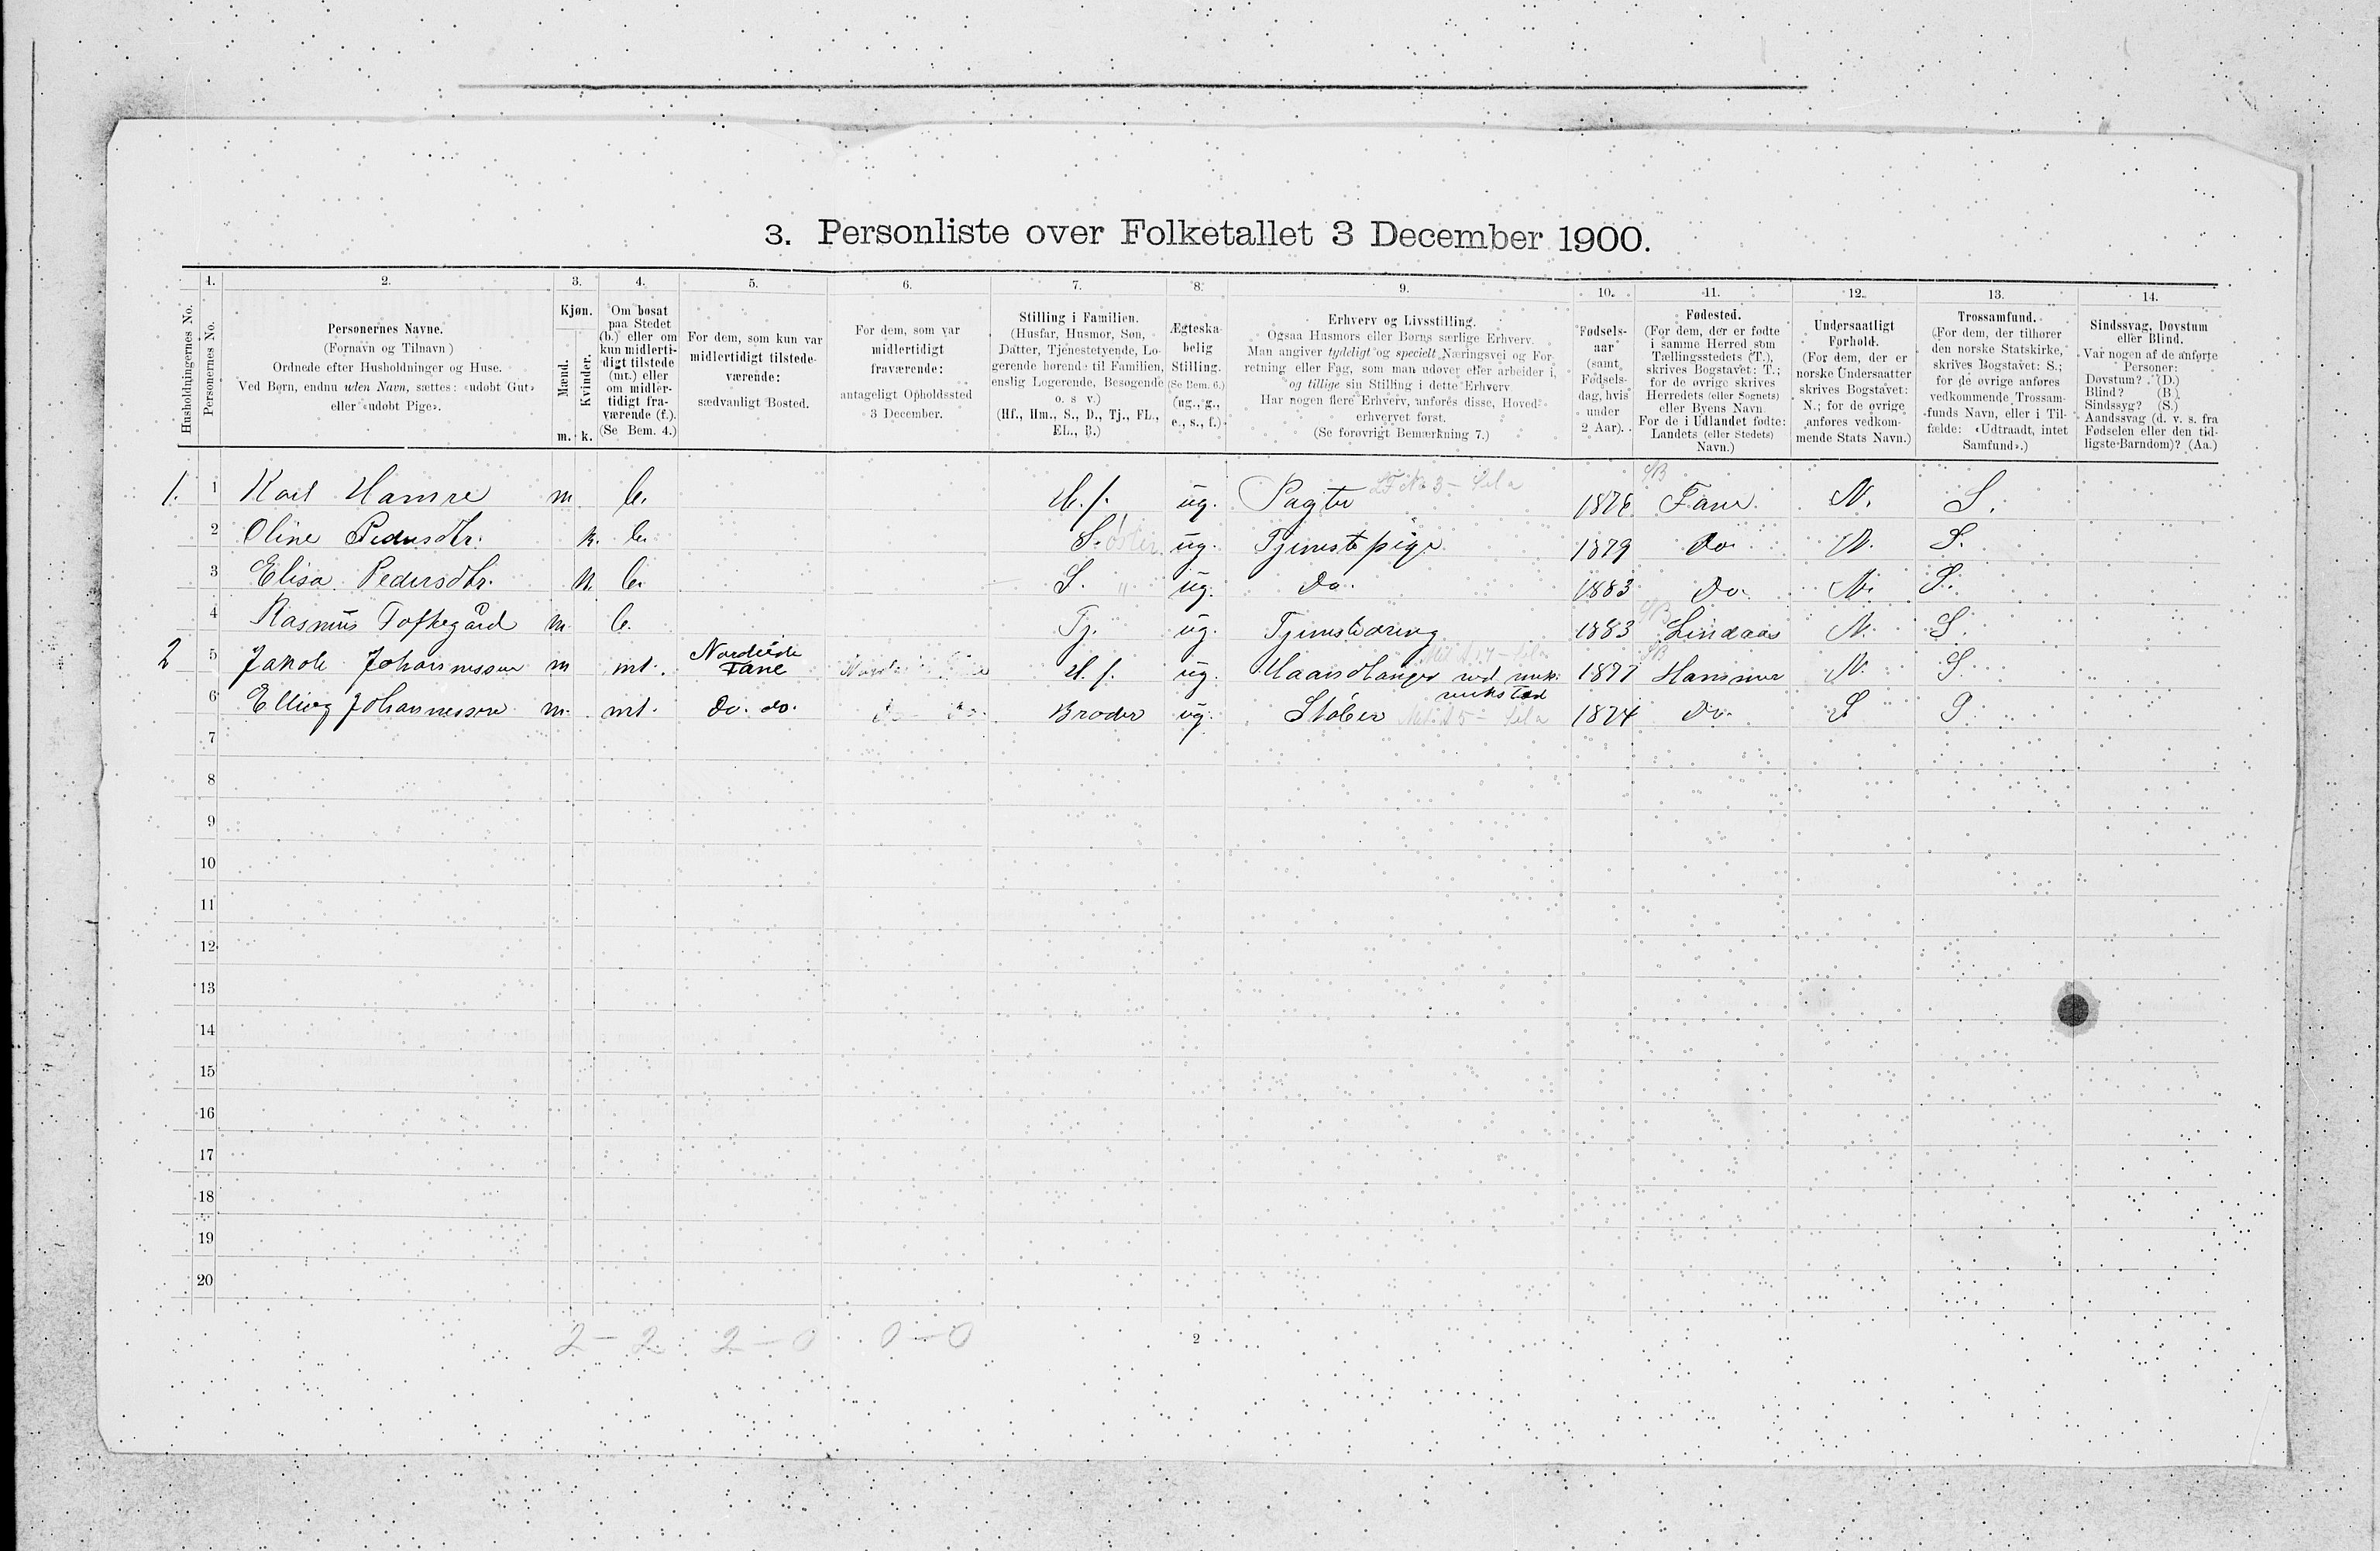 3. Personliste over Folketallet 3 December 1900.
1. 2. 3. 4. 5. 6. 7. 8. 9. 10. 11. 12. 13. 14.
Husholdningernes No.
Personernes No.
Personernes Navne.
(Fornavn og Tilnavn)
Ordnede efter Husholdninger og Huse.
Ved Børn, endnu uden Navn, sættes: «udøbt Gut»
eller «udøbt Pige».
Kjøn.
Mænd.
Kvinder.
m. k.
Om bosat
paa Stedet
(b.) eller om
kun midlerti-
digt tilstede
(mt.) eller
om midler-
tidigt fra-
værende (f.).
(Se Bem. 4.)
For dem, som kun var
midlertidigt tilstede-
værende:
sædvanligt Bosted.
For dem, som var
midlertidigt
fraværende:
antageligt Opholdssted
3 December.
Stilling i Familien.
(Husfar, Husmor, Søn,
Datter, Tjenestetyende, Lo-
gerende hørende til Familien,
enslig Logerende, Besøgende
o. s v.)
(Hf., Hm., S., D., Tj., FL.,
EL., B.)
Ægteska-
belig
Stilling.
(Se Bem. 6.)
(ug., g.,
e., s., f.)
Erhverv og Livsstilling.
Ogsaa Husmors eller Børns særlige Erhverv.
Man angiver tydeligt og specielt Næringsvei og For
retning eller Fag, som man udøver eller arbeider i,
og tillige sin Stilling i dette Erhverv
Har nogen flere Erhverv, anføres disse, Hoved-
erhvervet først.
(Se forøvrigt Bemærkning 7.)
Fødsels-
aar
(samt
Fødsels-
dag, hvis
under
2 Aar).
Fødested.
(For dem, der er fødte
i samme Herred som
Tællingsstedets (T.),
skrives Bogstavet: T.;
for de øvrige skrives
Herredets (eller Sognets)
eller Byens Navn.
For de i Udlandet fødte:
Landets (eller Stedets)
Navn.)
Undersaatligt
Forhold.
(For dem, der er
norske Undersaatter
skrives Bogstavet:
N.; for de øvrige
anføres vedkom-
mende Stats Navn.)
Trossamfund.
(For dem, der tilhører
den norske Statskirke,
skrives Bogstavet: S.;
for de øvrige anføres
vedkommende Trossam-
funds Navn, eller i Til-
fælde: «Udtraadt, intet
Samfund».)
Sindssvag, Døvstum
eller Blind.
Var nogen af de anførte
Personer:
Døvstum? (D.)
Blind? (B.)
Sindssyg? (S.)
Aandssvag (d. v. s. fra
Fødselen eller den tid-
ligste Barndom)? (Aa.)
1. 1 Karl Hamre m b. H.f. ug. Pagter 1876 Fane N. S.
2 Oline Pedersdtr. k. b. S.øster ug. Tjenestepige 1879 Do. N. S.
3 Elisa Pedersdtr. k. b. S. " ug. Do. 1883 Do. N. S.
4 Rasmus Toftegård m b. Tj. ug. Tjenestedreng 1883 Lindaas N. S.
2 5 Jakob Johannessen m mt. Fane H.f. ug. Haandlanger ved 1877 Hammer N. S.
6 Elling Johannessen m. mt. Do. do. Do. Do. Broder ug. Støber 1874 Do. S S
7
8
9
10
11
12
13
14
15
16
17
18
19
20
2 – 2 2 – 0 0 – 0
2